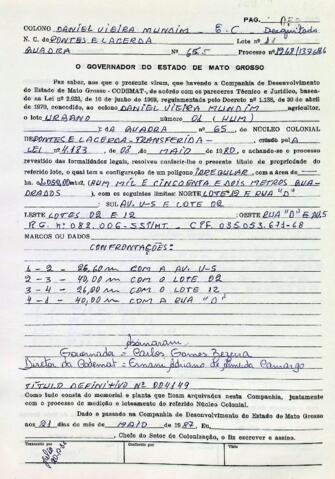 PAG.
COLONO DANIEL VIEIRA MUNDIM E.C. Desquitado
N. C. de PONTES E LACERDA Lote nº 01
QUADRA Nº 65 Processo nº
O GOVERNADOR DO ESTADO DE MATO GROSSO
Faz saber, aos que o presente virem, que havendo a Companhia de Desenvolvimento
do Estado de Mato Grosso - CODEMAT-, de acordo com os pareceres Técnico e Jurídico, basea-
da na Lei nº 2.933, de 10 de junho de 1969, regulamentada pelo Decreto nº 1.138, de 30 de abril
de 1970, concedido, ao colono DANIEL VIEIRA MUNDIM agricultor,
o lote URBANO nº 01 (HUM)
); da QUADRA nº 65 do NÚCLEO COLONIAL
DE PONTES E LACERDA - TRANSFERIDA - criado pela
LEI nº 4.183 de 08 de MAIO de 1980, e achando-se o processo
revestido das formalidades legais, resolveu conferir-lhe o presente título de propriedade do
referido lote, o qual tem a configuração de um polígono IRREGULAR com a área de
ha 1.052,00m2 (HUM MIL E CINCOENTA E DOIS METROS QUA-
DRADOS), com os seguintes limites: NORTE LOTE 12 E RUA "D"
: SUL AV. U-5 E LOTE 02
LESTE LOTES 02 E 12 : OESTE RUA "D" E AV. U-5
R.G. nº 082.006-SSP/MT. CPF. 035.053.671-68
MARCOS OU DADOS
CONFRONTAÇÕES:
1 - 2 - 26,60m COM A AV. U-5
2 - 3 - 40,00m COM O LOTE 02
3 - 4 - 26,00m COM O LOTE 12
4 - 1 - 40,00m COM A RUA "D"
Assinaram
Governador = Carlos Gomes Bezerra
Diretor da Codemat = Ernani Adriano de Almeida Camargo
TÍTULO DEFINITIVO Nº 004149
Como tudo consta do memorial e planta que ficam arquivados nesta Companhia, juntamente
com o processo de medição e loteamento do referido Núcleo Colonial.
Dado e passado na Companhia de Desenvolvimento do Estado de Mato Grosso
aos 21 dias do mês de MAIO de 1987 Eu,
, Chefe do Setor de Colonização, o fiz escrever e assino.
Transcrito por
Conferido por
Visto